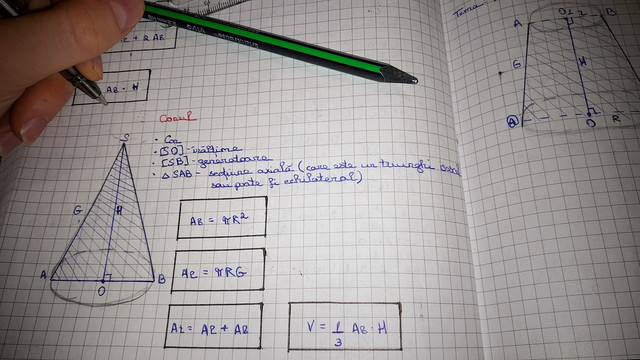 + 2 AB
AB · H
Conul
· Con
· [SO] - înălțime
· [SB] - generatoare
· △ SAB - secțiune axială (care este un triunghi
sau poate fi echilateral)
AB = πR²
Al = πRG
At = Al + AB
V = 1/3 AB · H
S
G
H
A
O
B
Tema
A
B
G
H
A
O
R